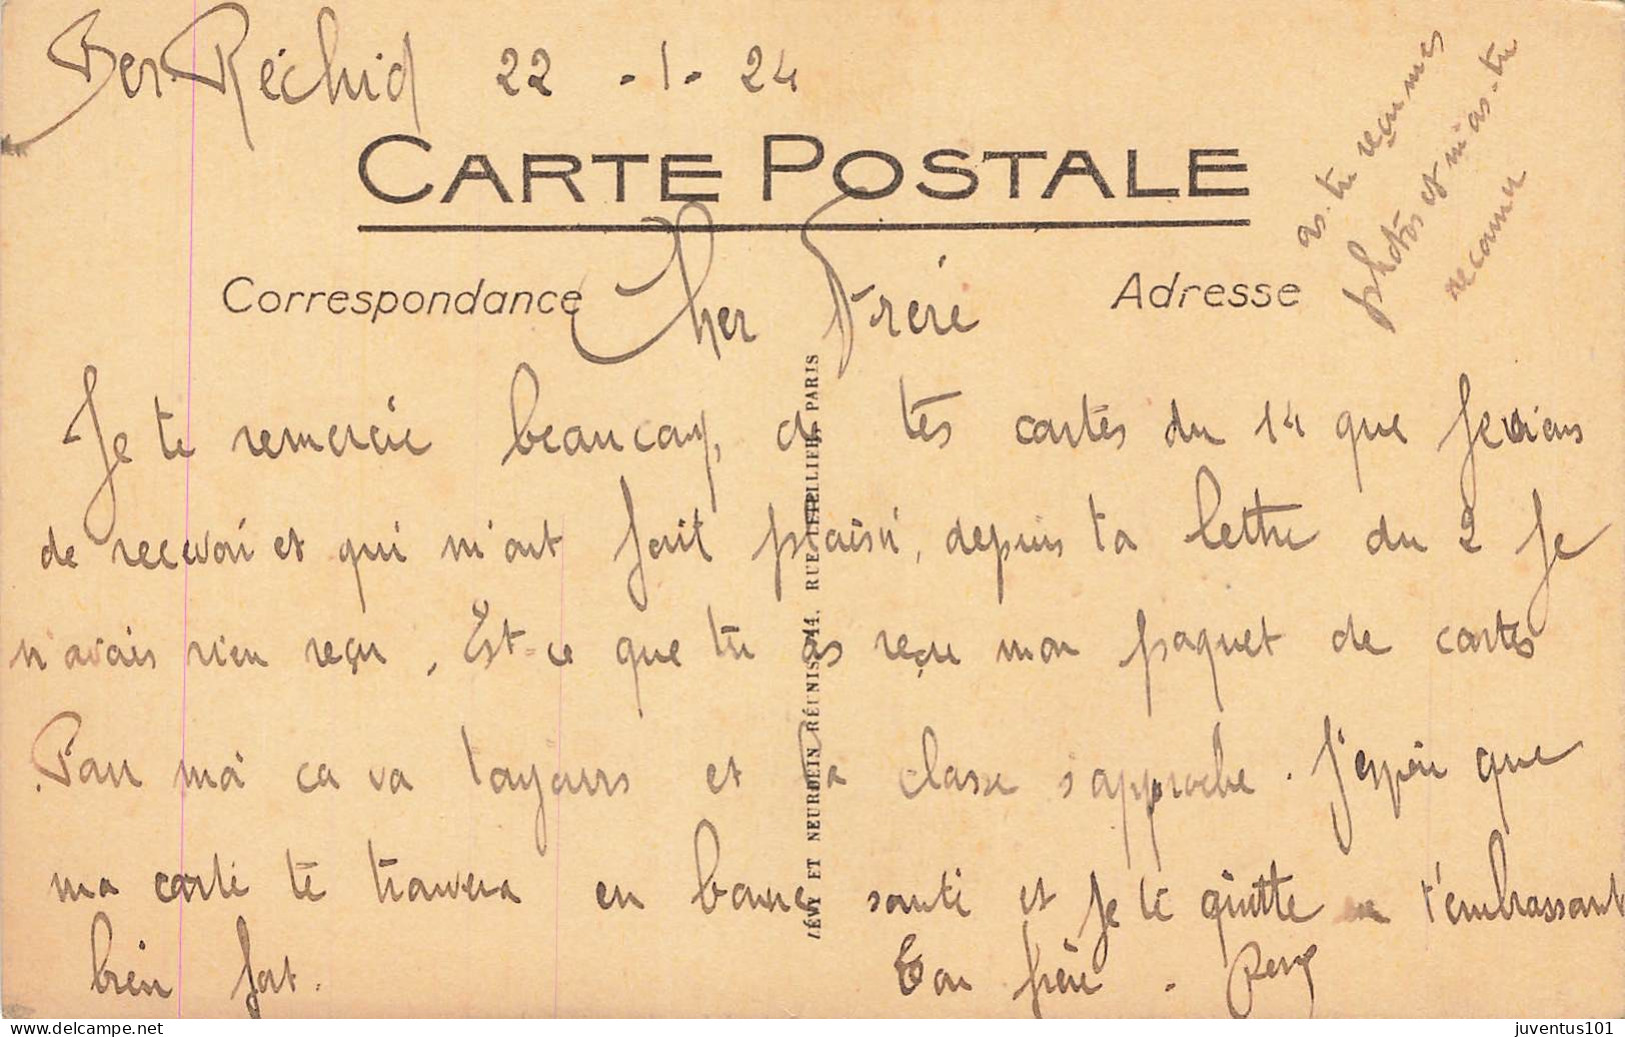 Ber Réchid 22 - 1 - 24
CARTE POSTALE
as-tu reçu mes
photos et m'as-tu
reconnu
Correspondance
Adresse
Cher Frère
Je te remercie beaucoup, de tes cartes du 14 que Je viens
de recevoir et qui m'ont fait plaisir, depuis ta lettre du 2 Je
n'avais rien reçu. Est-ce que tu as reçu mon paquet de cartes
Pour moi ca va toujours et la classe s'approche. J'espère que
ma carte te trouvera en bonne santé et Je te quitte en t'embrassant
bien fort.
Ton frère.
LÉVY ET NEURDEIN RÉUNIS, 44, RUE LETELLIER, PARIS
delcampe.net
juventus101